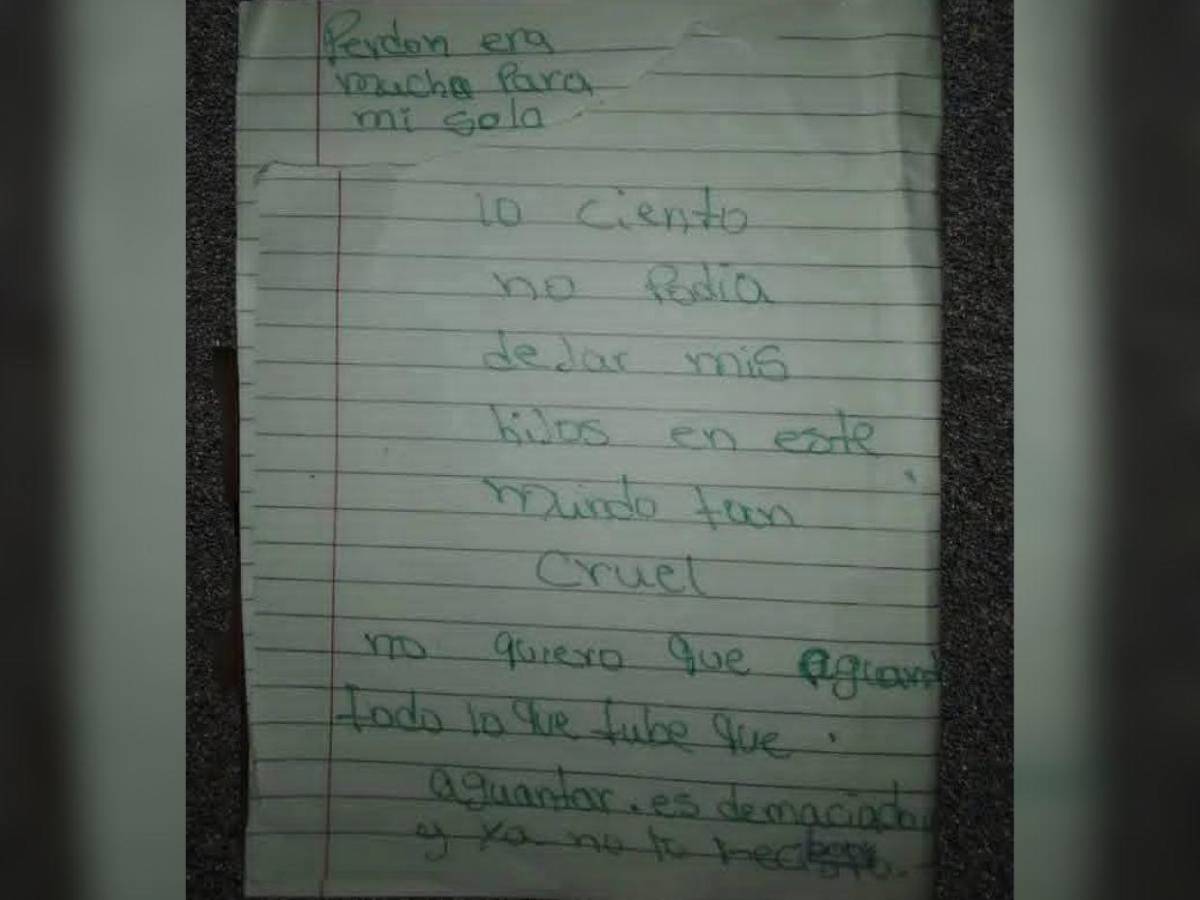 Perdon era
mucho para
mi sola
lo ciento
no podia
dejar mis
hijos en este
mundo tan
cruel
no quiero que aguant
todo lo que tube que
aguantar. es demaciado
y ya no lo